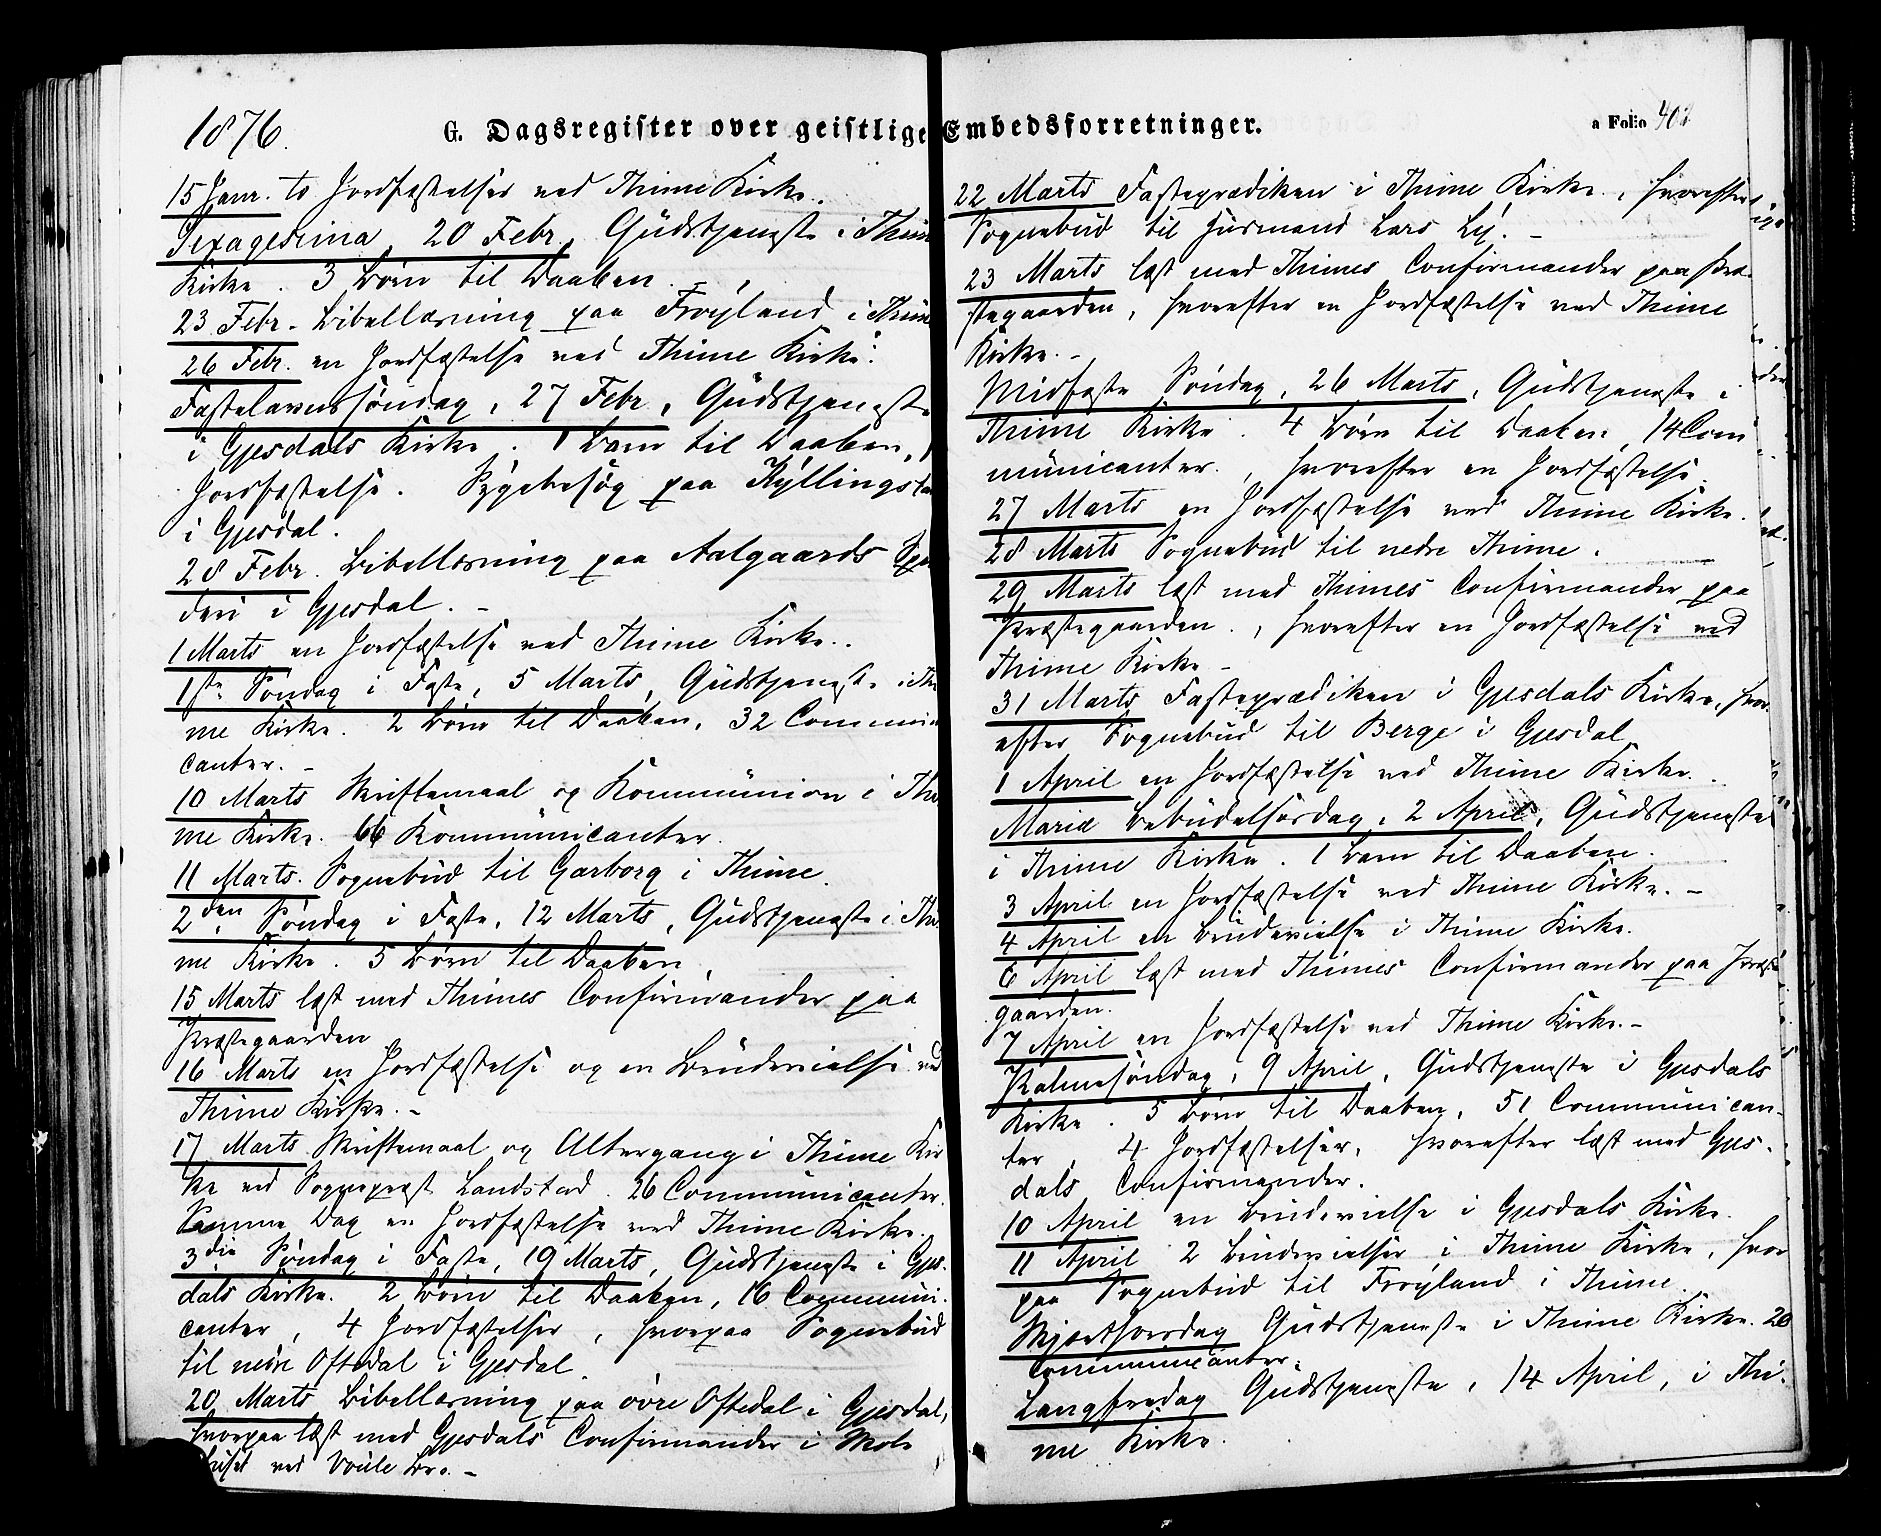 1876.
G. Dagsregister over geistlige Embedsforretninger.
a Folio
15 Janr. to Jordfæstelser ved Thime Kirke.
Sexagesima, 20 Febr, Gudstjeneste i Thime
Kirke. 3 Børn til Daaben.
23 Febr. Bibellæsning paa Frøyland i Thime
26 Febr. en Jordfæstelse ved Thime Kirke.
Fastelavnssøndag, 27 Febr, Gudstjeneste
i Gjesdals Kirke. 1 Barn til Daaben, 1
Jordfæstelse. Sygebesøg paa Kyllingstad
i Gjesdal.
28 Febr. Bibellæsning paa Aalgaards Spin
deri i Gjesdal. -
1 Marts en Jordfæstelse ved Thime Kirke.
1ste Søndag i Faste, 5 Marts, Gudstjeneste i Thi
me Kirke. 2 Børn til Daaben, 32 Communi
canter. -
10 Marts Skriftemaal og Kommunion i Thi
me Kirke. 66 Kommunicanter.
11 Marts. Sognebud til Garborg i Thime.
2den Søndag i Faste, 12 Marts, Gudstjeneste i Thi
me Kirke. 5 Børn til Daaben.
15 Marts læst med Thimes Confirmander paa
Præstegaarden
16 Marts en Jordfæstelse og en Brudevielse ved
Thime Kirke. -
17 Marts Skriftemaal og Altergang i Thime Kir
ke ved Sognepræst Landstad. 26 Communicanter.
Samme Dag en Jordfæstelse ved Thime Kirke.
3die Søndag i Faste, 19 Marts, Gudstjeneste i Gjes-
dals Kirke. 2 Børn til Daaben, 16 Communi-
canter, 4 Jordfæstelser, hvorpaa Sognebud
til nedre Oftedal i Gjesdal.
20 Marts Bibellæsning paa øvre Oftedal i Gjesdal,
hvorpaa læst med Gjesdals Confirmander i Skole
huset ved
22 Marts Fasteprædiken i Thime Kirke, hvorefter
Sognebud til Husmand Lars Ly. -
23 Marts læst med Thimes Confirmander paa Præ-
stegaarden, hvorefter en Jordfæstelse ved Thime
Kirke. -
Midfaste Søndag, 26 Marts, Gudstjeneste i
Thime Kirke. 4 Børn til Daaben, 14 Com
municanter, hvorefter en Jordfæstelse.
27 Marts en Jordfæstelse ved Thime Kirke.
28 Marts Sognebud til nedre Thime.
29 Marts læst med Thimes Confirmander paa
Præstegaarden, hvorefter en Jordfæstelse ved
Thime Kirke -
31 Marts Fasteprædiken i Gjesdals Kirke, hvor-
efter Sognebud til Berge i Gjesdal
1 April en Jordfæstelse ved Thime Kirke.
Mariæ Bebudelsesdag, 2 April, Gudstjeneste
i Thime Kirke. 1 Barn til Daaben.
3 April en Jordfæstelse ved Thime Kirke. -
4 April en Brudevielse i Thime Kirke.
6 April læst med Thimes Confirmander paa Præste
gaarden.
7 April en Jordfæstelse ved Thime Kirke. -
Palmesøndag, 9 April, Gudstjeneste i Gjesdals
Kirke. 5 Børn til Daaben, 51 Communican-
ter, 4 Jordfæstelser, hvorefter læst med Gjes-
dals Confirmander.
10 April en Brudevielse i Gjesdals Kirke.
11 April 2 Brudevielser i Thime Kirke, hvor
paa Sognebud til Frøyland i Thime
Skjærthorsdag Gudstjeneste i Thime Kirke. 20
Communicanter.
Langfredag Gudstjeneste, 14 April, i Thi-
me Kirke.